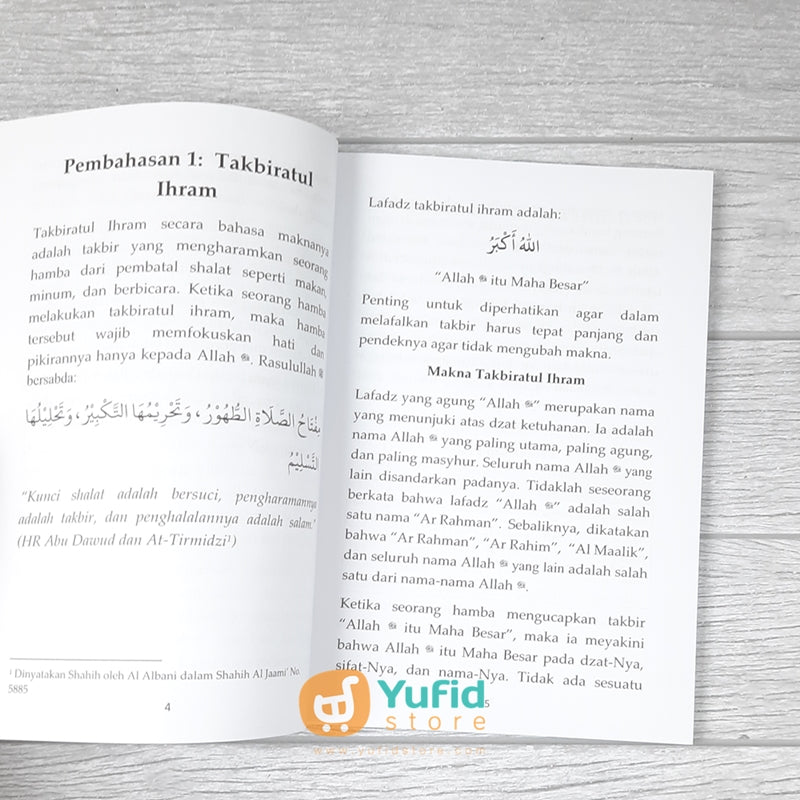 Pembahasan 1: Takbiratul
Ihram
Takbiratul Ihram secara bahasa maknanya
adalah takbir yang mengharamkan seorang
hamba dari pembatal shalat seperti makan,
minum, dan berbicara. Ketika seorang hamba
melakukan takbiratul ihram, maka hamba
tersebut wajib memfokuskan hati dan
pikirannya hanya kepada Allah ﷻ. Rasulullah ﷺ
bersabda:
مِفْتَاحُ الصَّلَاةِ الطُّهُوْرُ، وَتَحْرِيْمُهَا التَّكْبِيْرُ، وَتَحْلِيْلُهَا
التَّسْلِيْمُ
“Kunci shalat adalah bersuci, pengharamannya
adalah takbir, dan penghalalannya adalah salam.”
(HR Abu Dawud dan At-Tirmidzi¹)
¹ Dinyatakan Shahih oleh Al Albani dalam Shahih Al Jaami’ No.
5885
4
Lafadz takbiratul ihram adalah:
اللهُ أَكْبَرُ
“Allah ﷻ itu Maha Besar”
Penting untuk diperhatikan agar dalam
melafalkan takbir harus tepat panjang dan
pendeknya agar tidak mengubah makna.
Makna Takbiratul Ihram
Lafadz yang agung “Allah ﷻ” merupakan nama
yang menunjuki atas dzat ketuhanan. Ia adalah
nama Allah ﷻ yang paling utama, paling agung,
dan paling masyhur. Seluruh nama Allah ﷻ yang
lain disandarkan padanya. Tidaklah seseorang
berkata bahwa lafadz “Allah ﷻ” adalah salah
satu nama “Ar Rahman”. Sebaliknya, dikatakan
bahwa “Ar Rahman”, “Ar Rahim”, “Al Maalik”,
dan seluruh nama Allah ﷻ yang lain adalah salah
satu dari nama-nama Allah ﷻ.
Ketika seorang hamba mengucapkan takbir
“Allah ﷻ itu Maha Besar”, maka ia meyakini
bahwa Allah ﷻ itu Maha Besar pada dzat-Nya,
sifat-Nya, dan nama-Nya. Tidak ada sesuatu
5
Yufid
store
www.yufidstore.com